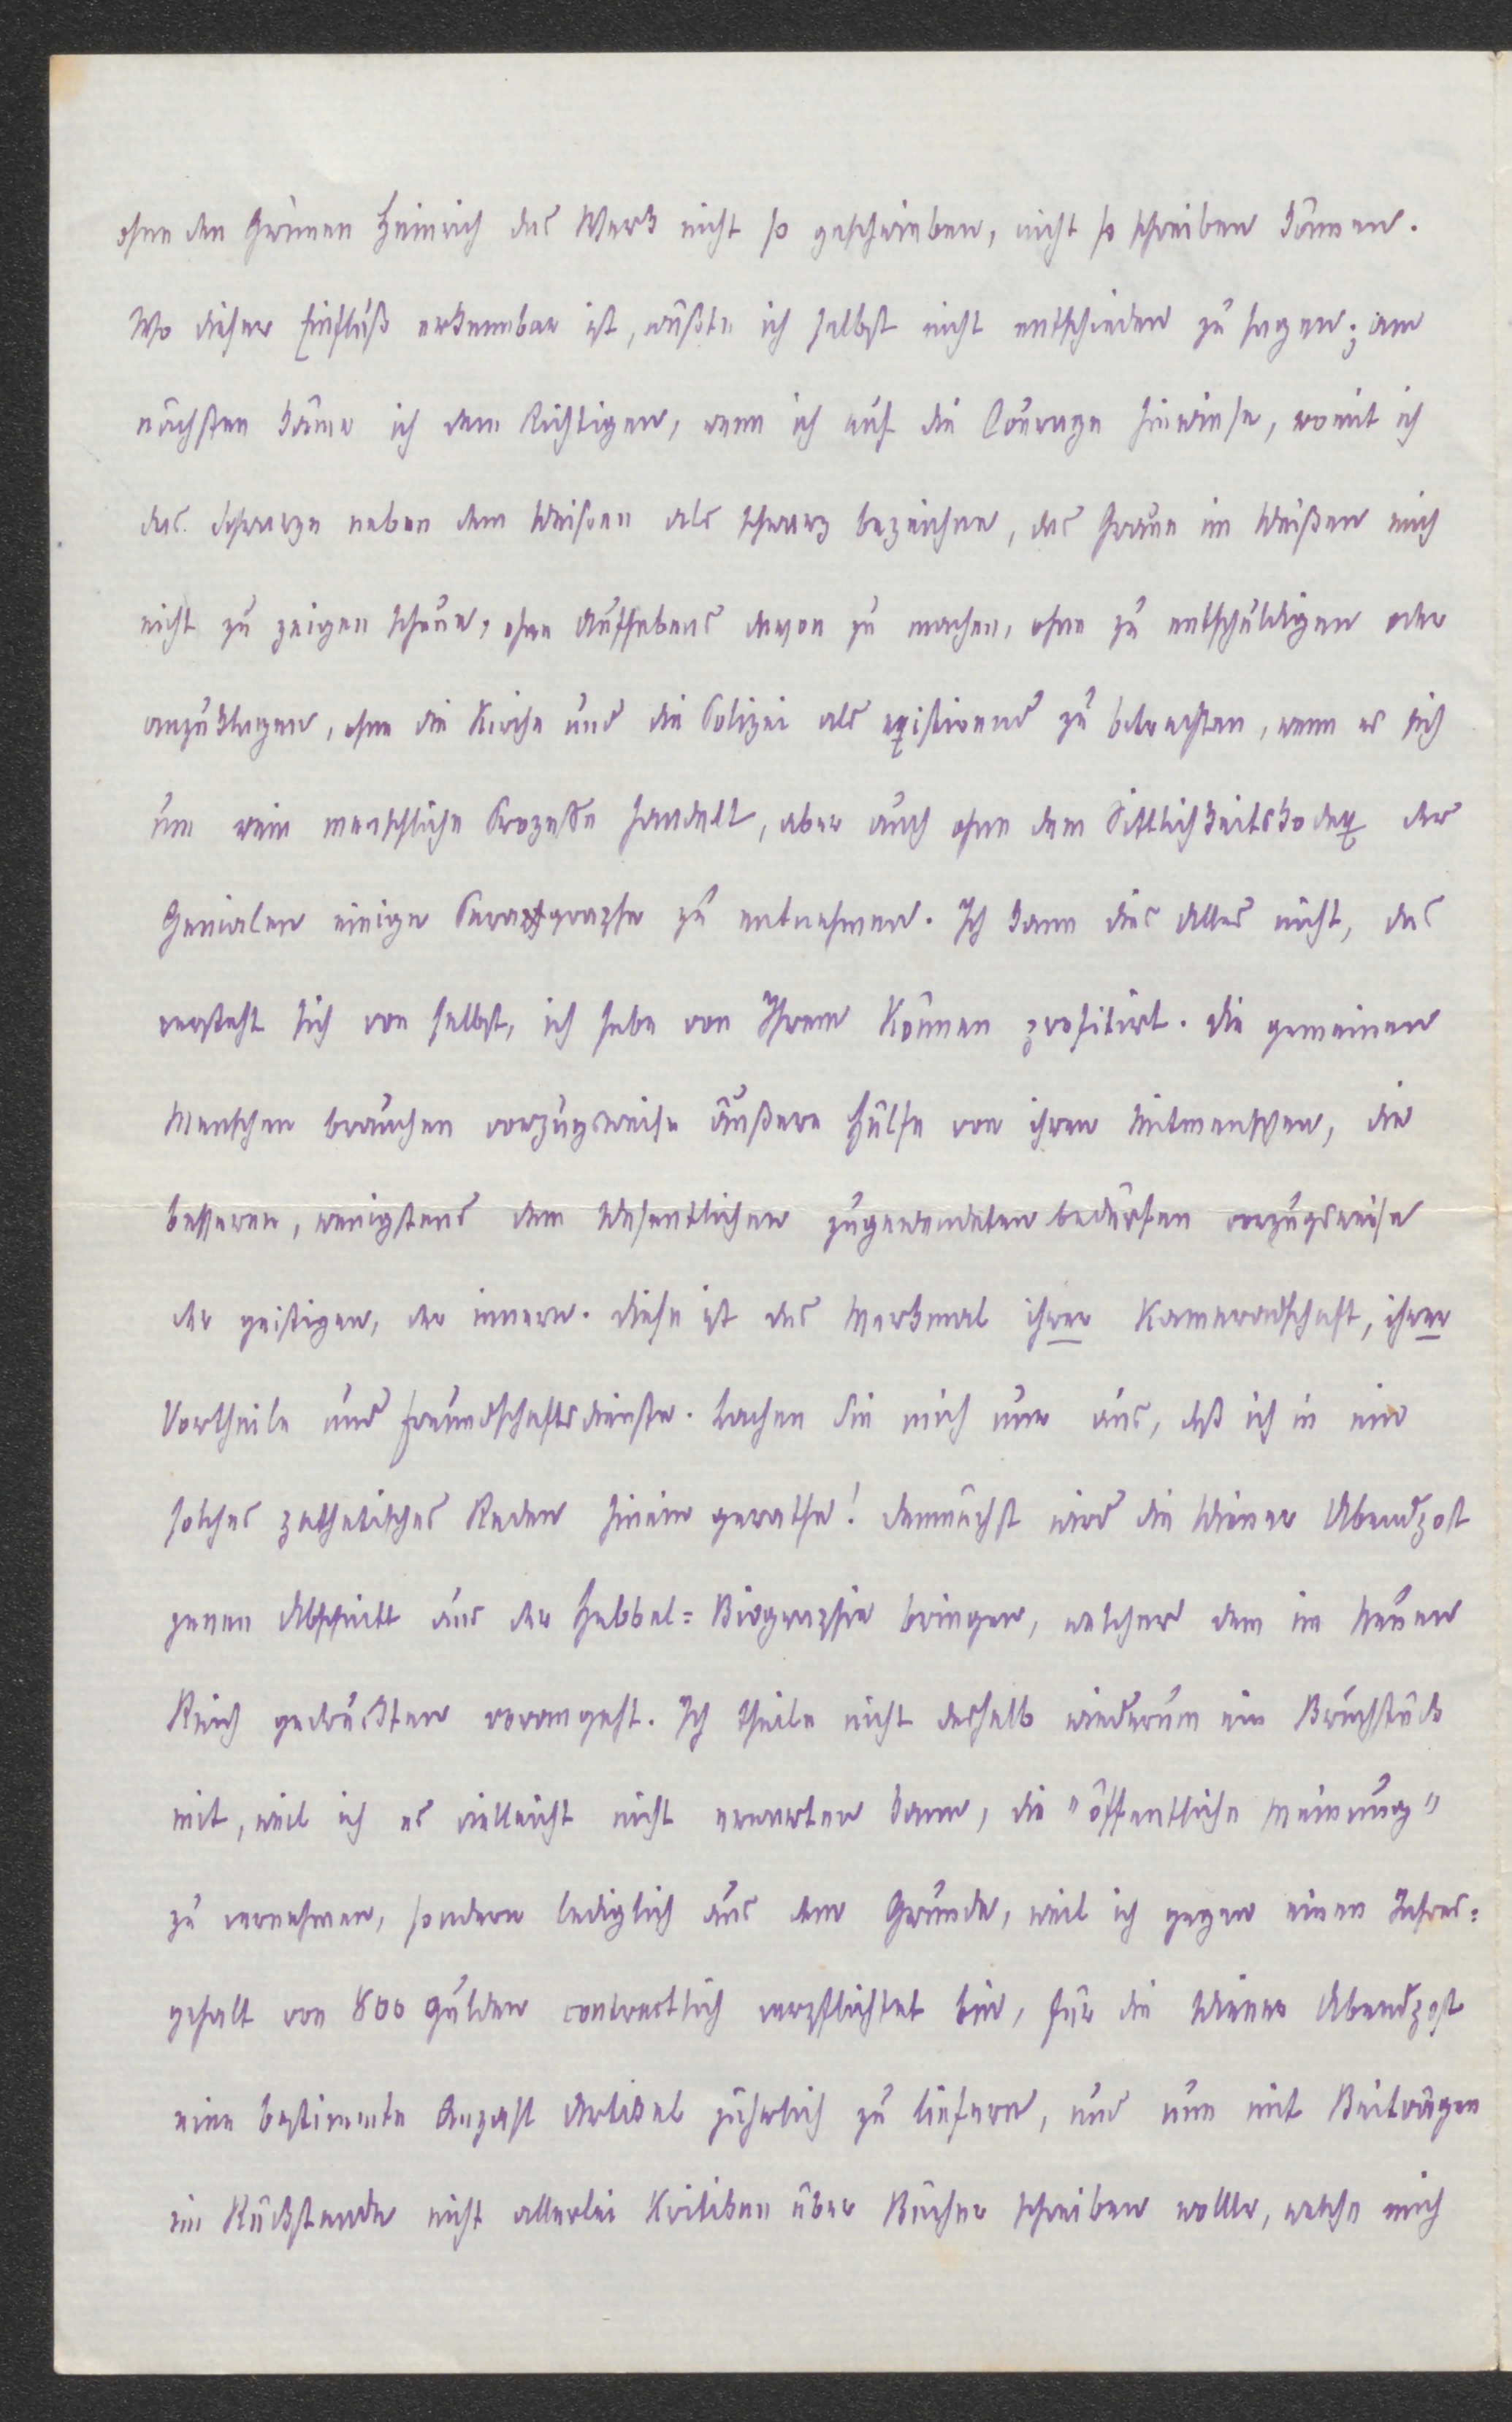 ohne den Grünen Heinrich das Werk nicht so geschrieben, nicht so schreiben können.
Wo dieser Einfluß erkennbar ist, wüßte ich selbst nicht entschieden zu sagen; am
nächsten käme ich dem Richtigen, wenn ich auf die Courage hinwiese, womit ich
das Schwarze neben dem Weißen als schwarz bezeichne, das Graue im Weißen mich
nicht zu zeigen scheue, ohne Aufhebens davon zu machen, ohne zu entschuldigen oder
anzuklagen, ohne die Kirche und die Polizei als existirend zu betrachten, wenn es sich
um rein menschliche Prozesse handelt, aber auch ohne dem Sittlichkeitskodex der
Genialen einige Paragraphe zu entnehmen. Ich kann dies Alles nicht, das
versteht sich von selbst, ich habe von Ihrem Können profitirt. Die gemeinen
Menschen brauchen vorzugsweise äußere Hülfe von ihren Mitmenschen, die
besseren, wenigstens dem Wesentlichen zugewendeten bedürfen vorzugsweise
der geistigen, der innern. Diese ist das Merkmal ihrer Kameradschaft, ihrer
Vortheile und Freundschaftsdienste. Lachen Sie mich nur aus, daß ich in ein
solches pathetisches Reden hinein gerathe! Demnächst wird die Wiener Abendpost
jenen Abschnitt aus der Hebbel=Biographie bringen, welcher dem im Neuen
Reich gedruckten vorangeht. Ich theile nicht deshalb wiederum ein Bruchstück
mit, weil ich es vielleicht nicht erwarten kann, die "öffentliche Meinung"
zu vernehmen, sondern lediglich aus dem Grunde, weil ich gegen einen Jahres=
gehalt von 800 Gulden contractlich verpflichtet bin, für die Wiener Abendpost
eine bestimmte Anzahl Artikel jährlich zu liefern, und nun mit Beiträgen
im Rückstande nicht allerlei Kritiken über Bücher schreiben wollte, welche mich